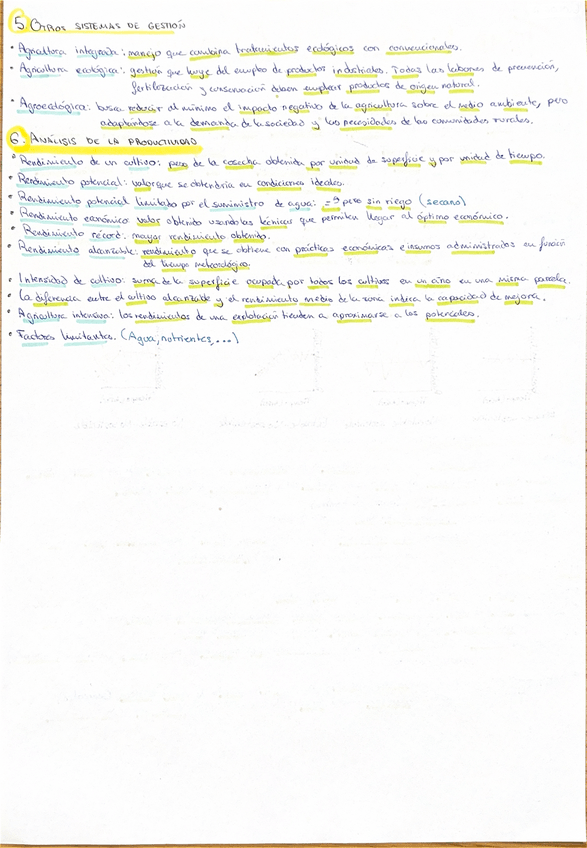 5. OTROS SISTEMAS DE GESTIÓN
• Agricultura integrada: manejo que combina tratamientos ecológicos con convencionales.
• Agricultura ecológica: gestión que huye del empleo de productos industriales. Todas las labores de prevención,
fertilización y conservación deben emplear productos de origen natural.
• Agroecológica: busca reducir al mínimo el impacto negativo de la agricultura sobre el medio ambiente, pero
adaptándose a la demanda de la sociedad y las necesidades de las comunidades rurales.
6. ANÁLISIS DE LA PRODUCTIVIDAD
• Rendimiento de un cultivo: peso de la cosecha obtenida por unidad de superficie y por unidad de tiempo.
• Rendimiento potencial: valor que se obtendría en condiciones ideales.
• Rendimiento potencial limitado por el suministro de agua: = pero sin riego (secano)
• Rendimiento económico: valor obtenido usando las técnicas que permiten llegar al óptimo económico.
• Rendimiento récord: mayor rendimiento obtenido.
• Rendimiento alcanzable: rendimiento que se obtiene con prácticas económicas e insumos administrados en función
del tiempo meteorológico.
• Intensidad de cultivo: suma de la superficie ocupada por todos los cultivos en un año en una misma parcela.
• La diferencia entre el cultivo alcanzable y el rendimiento medio de la zona indica la capacidad de mejora.
• Agricultura intensiva: los rendimientos de una explotación tienden a aproximarse a los potenciales.
• Factores limitantes. (Agua, nutrientes, ...)